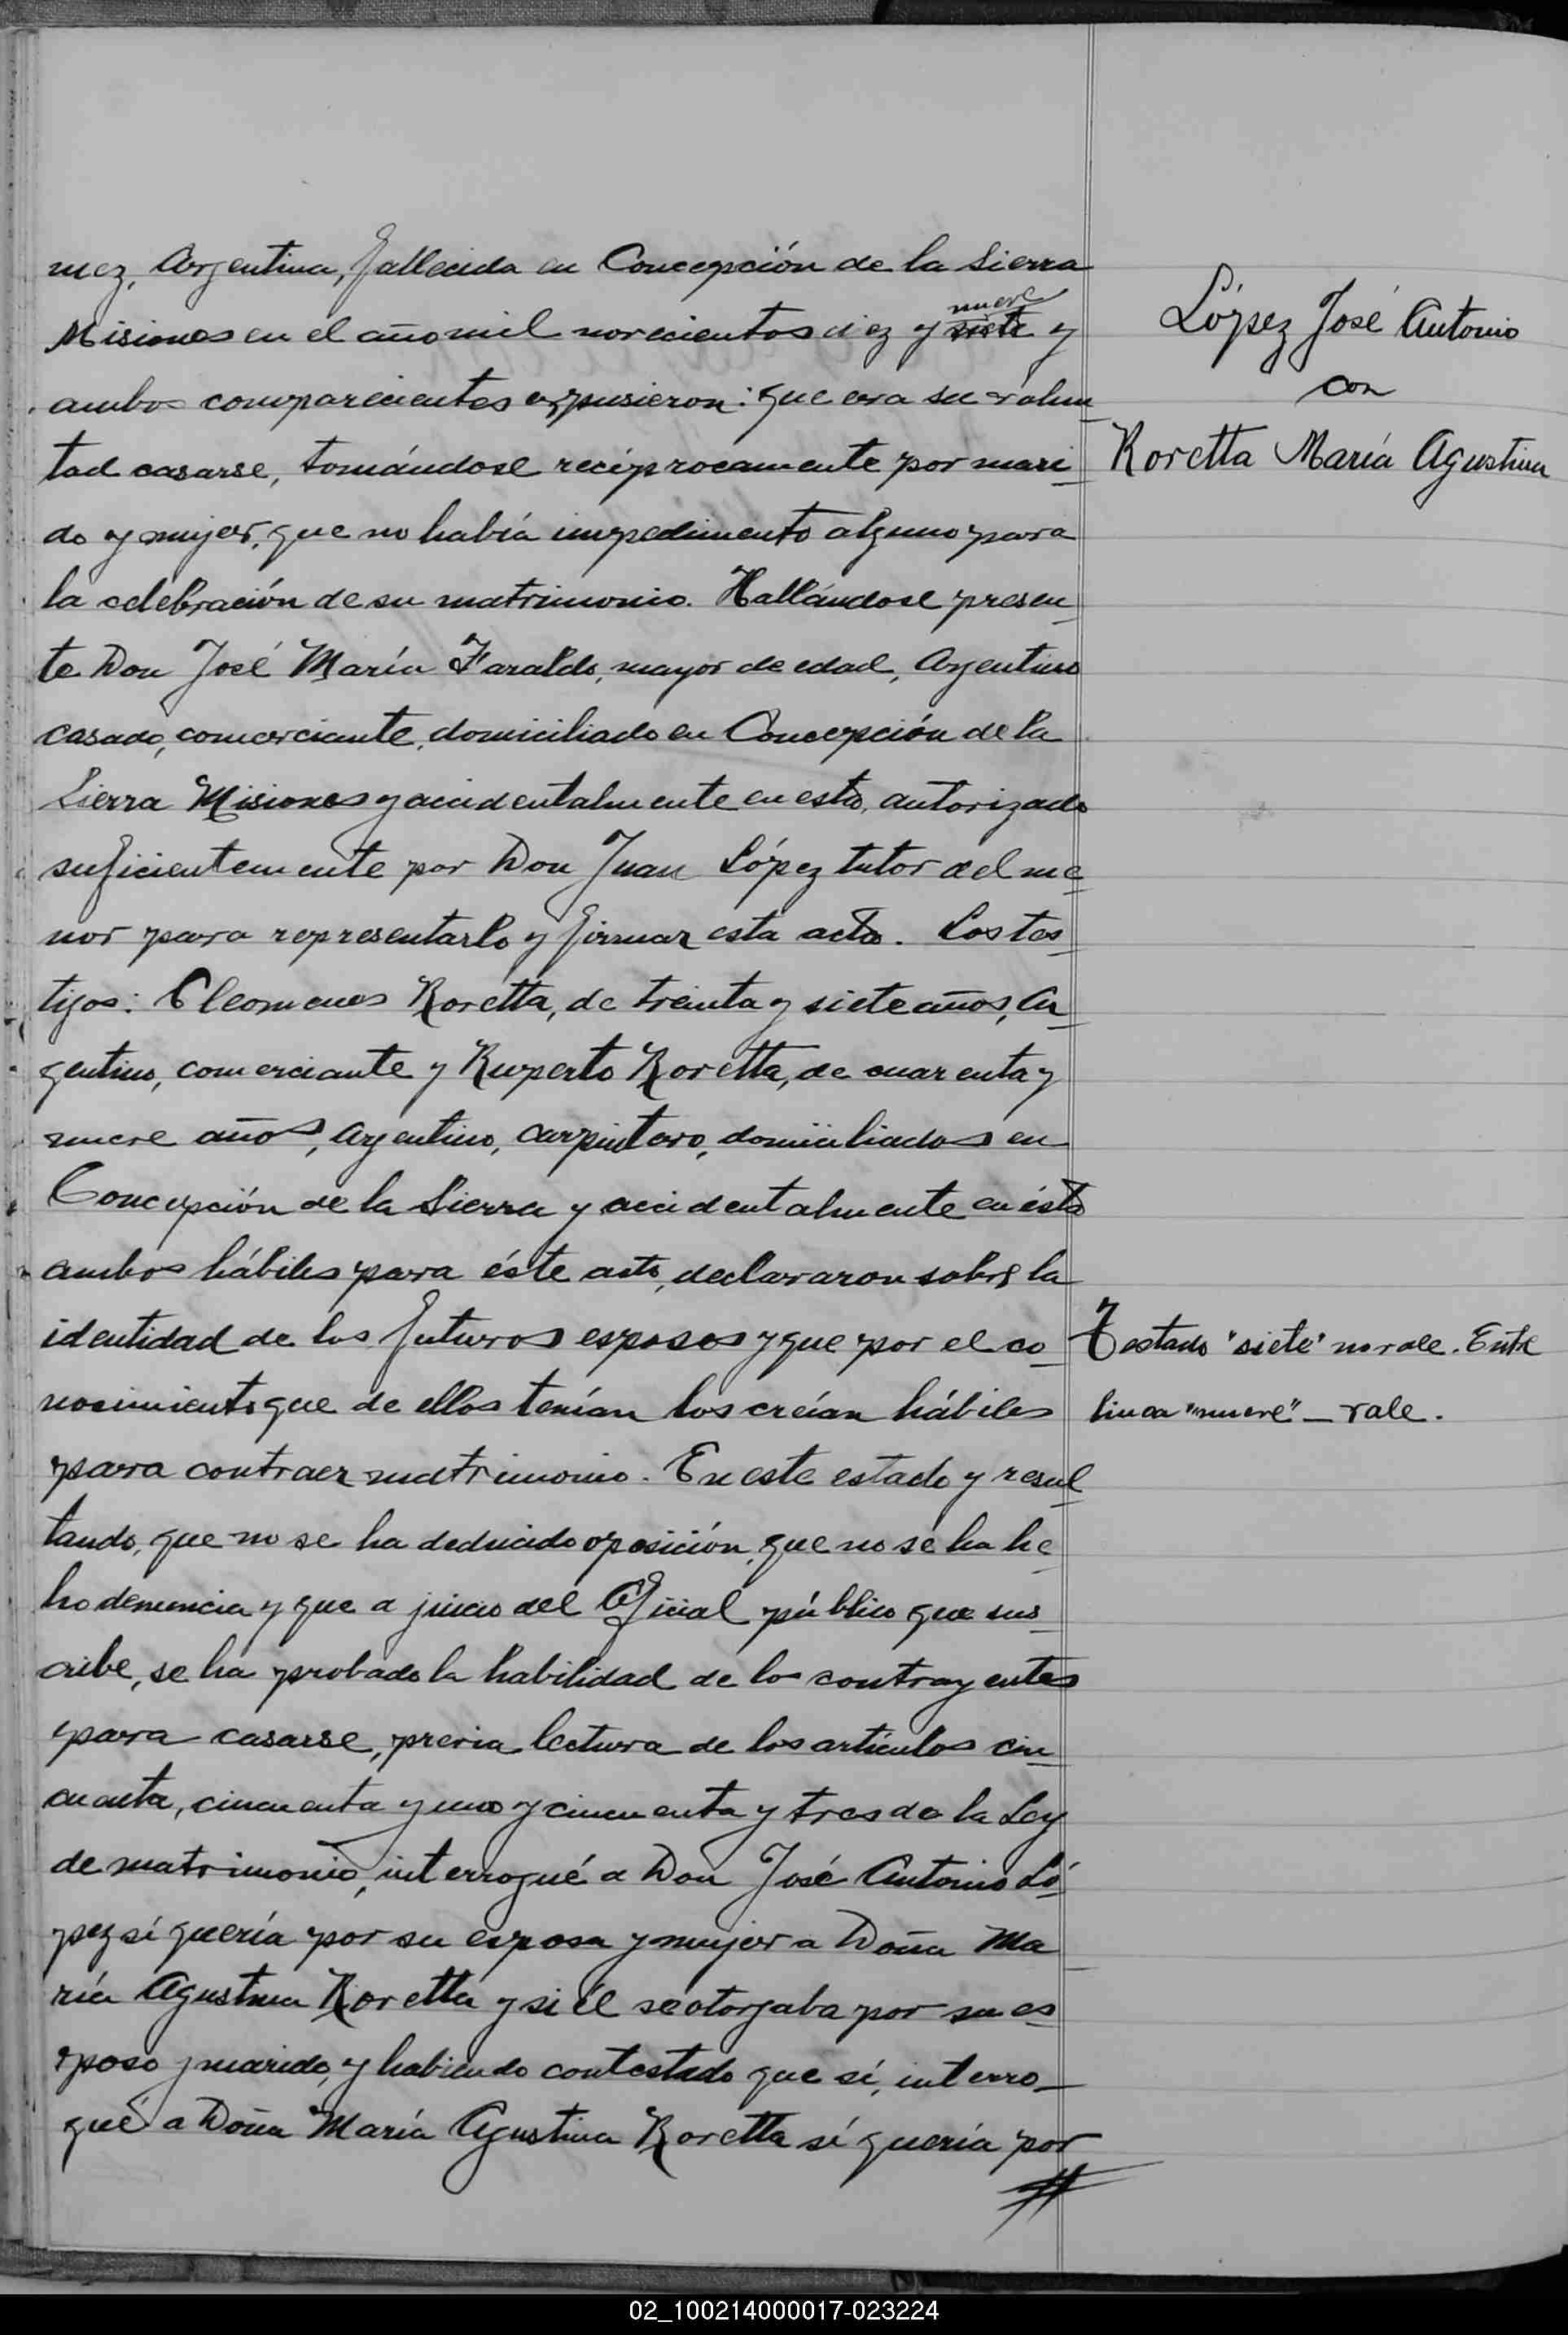 nez, Argentina, fallecida en Concepción de la Sierra
nueve
Misiones en el año mil novecientos diez y siete y
ambos comparecientes expusieron: que era su volun
tad casarse, tomándose recíprocamente por mari
do y mujer, que no había impedimento alguno para
la celebración de su matrimonio. Hallándose presen
te Don José María Faraldo, mayor de edad, Argentino
casado, comerciante, domiciliado en Concepción de la
Sierra Misiones y accidentalmente en esta, autorizado
suficientemente por Don Juan López tutor del me
nor para representarlo y firmar esta acta. Los tes
tigos: Cleomenes Roretta, de treinta y siete años, Ar
gentino, comerciante y Ruperto Roretta, de cuarenta y
nueve años, Argentino, carpintero, domiciliados en
Concepción de la Sierra y accidentalmente en ésta
ambos hábiles para éste acto, declararon sobre la
identidad de los futuros esposos y que por el co
nocimiento que de ellos tenían los creían hábiles
para contraer matrimonio. En este estado y resul
tando, que no se ha deducido oposición, que no se ha he
ho denuncia y que a juicio del Oficial público que sus
cribe, se ha probado la habilidad de los contrayentes
para casarse, previa lectura de los artículos cin
cuenta, cincuenta y uno y cincuenta y tres de la Ley
de matrimonio, interrogué a Don José Antonio Ló
pez sí quería por su esposa y mujer a Doña Ma
ría Agustina Roretta y si él se otorgaba por su es
poso y marido, y habiendo contestado que sí, interro
gué a Doña María Agustina Roretta sí quería por
López José Antonio
con
Roretta María Agustina
Testado "siete" no vale. Entre
linea "nueve" - vale.
02_100214000017-023224